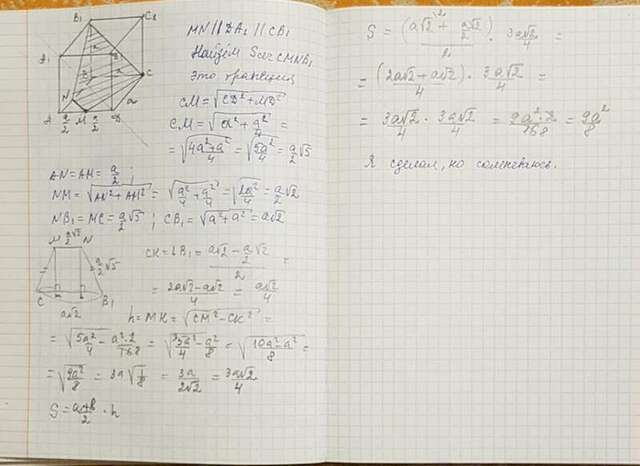 B₁ C₁
A₁
B C
N
A a/2 M a/2 D a
MN || DA₁ || CB₁
Найдём Sсеч CMNB₁
это трапеция
CM = √(CD² + MD²)
CM = √(a² + a²/4) =
= √((4a² + a²)/4) = √(5a²/4) = a/2 √5
AN = AM = a/2 ;
NM = √(AN² + AM²) = √(a²/4 + a²/4) = √(2a²/4) = a/2 √2
NB₁ = MC = a/2 √5 ; CB₁ = √(a² + a²) = a√2
M a/2 √2 N
a/2 √5
C B₁
a√2
CK = LB₁ = (a√2 - a/2 √2)/2 =
= (2a√2 - a√2)/4 = a√2/4
h = MK = √(CM² - CK²) =
= √(5a²/4 - a²·2/16 8) = √(5a²/4 - a²/8) = √((10a² - a²)/8) =
= √(9a²/8) = 3a√(1/8) = 3a/(2√2) = 3a√2/4
S = (a+b)/2 · h
S = (a√2 + a√2/2)/2 · 3a√2/4 =
= (2a√2 + a√2)/4 · 3a√2/4 =
= 3a√2/4 · 3a√2/4 = 9a²·2/16 8 = 9a²/8
Я сделал, но сомневаюсь.